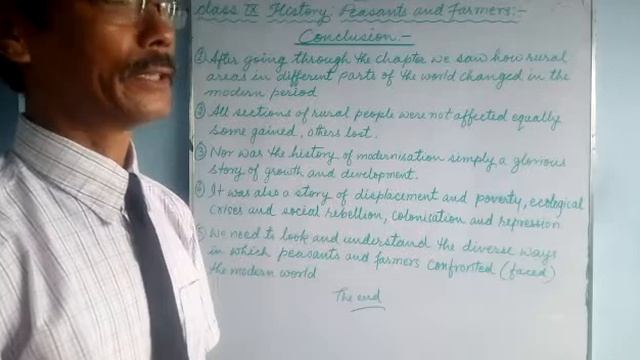 class IX History: Peasants and Farmers:-
Conclusion.-
① After going through the chapter we saw how rural
areas in different parts of the world changed in the
modern period
② All sections of rural people were not affected equally
some gained, others lost.
③ Nor was the history of modernisation simply a glorious
story of growth and development.
④ It was also a story of displacement and poverty, ecological
crises and social rebellion, colonisation and repression
⑤ We need to look and understand the diverse ways
in which peasants and farmers confronted (faced)
the modern world
The end